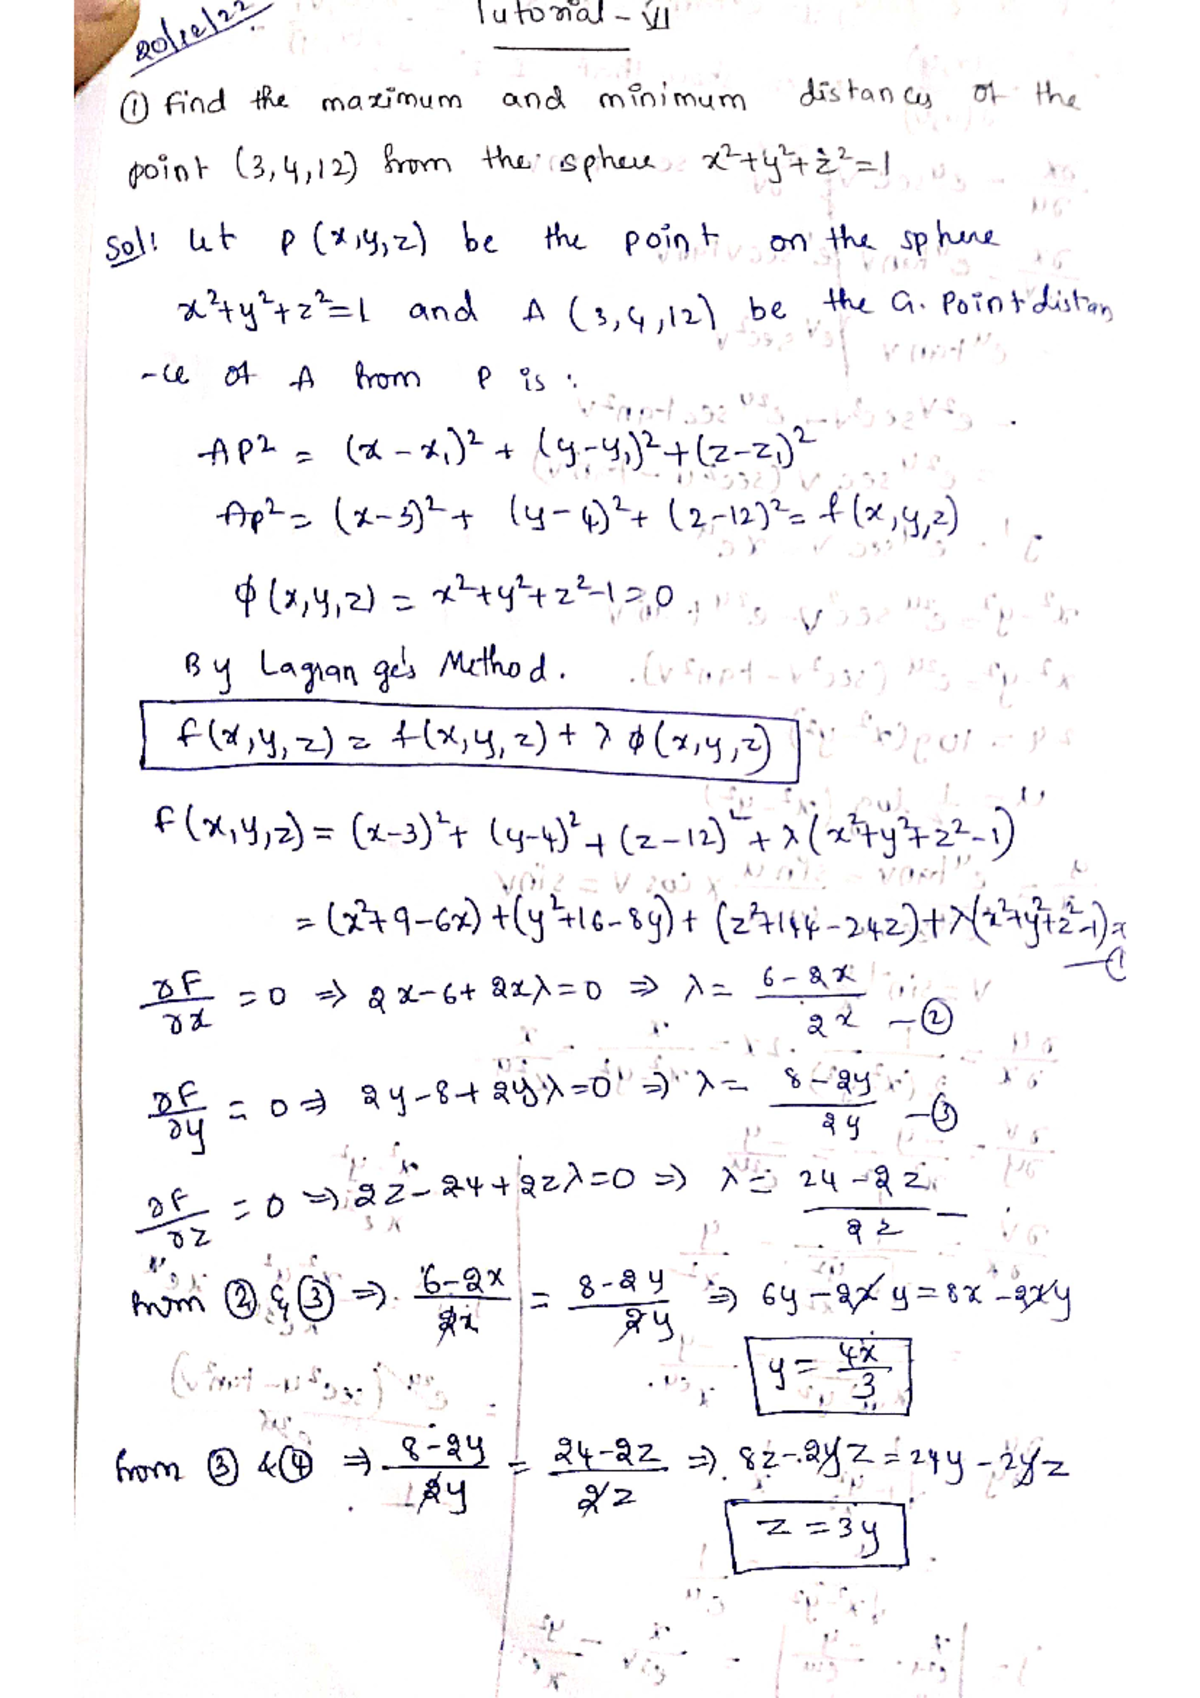 20/12/22
Tutorial - VI
① Find the maximum and minimum distances of the
point (3,4,12) from the sphere x²+y²+z²=1
Sol: let P(x,y,z) be the point on the sphere
x²+y²+z²=1 and A (3,4,12) be the G. Point distan
-ce of A from P is :
AP² = (x-x₁)² + (y-y₁)²+(z-z₁)²
AP² = (x-3)² + (y-4)²+ (z-12)² = f(x,y,z)
φ(x,y,z) = x²+y²+z²-1=0
By Lagrange's Method.
F(x,y,z) = f(x,y,z) + λ φ(x,y,z)
F(x,y,z) = (x-3)²+ (y-4)²+ (z-12)²+ λ(x²+y²+z²-1)
= (x²+9-6x)+(y²+16-8y)+ (z²+144-24z)+λ(x²+y²+z²-1)=
—①
∂F/∂x = 0 ⇒ 2x-6+2xλ=0 ⇒ λ = (6-2x)/2x —②
∂F/∂y = 0 ⇒ 2y-8+2yλ=0 ⇒ λ = (8-2y)/2y —③
∂F/∂z = 0 ⇒ 2z-24+2zλ=0 ⇒ λ = (24-2z)/2z —
from ② & ③ ⇒ (6-2x)/2x = (8-2y)/2y ⇒ 6y-2xy=8x-2xy
y = 4x/3
from ③ & ④ ⇒ (8-2y)/2y = (24-2z)/2z ⇒ 8z-2yz=24y-2yz
z = 3y